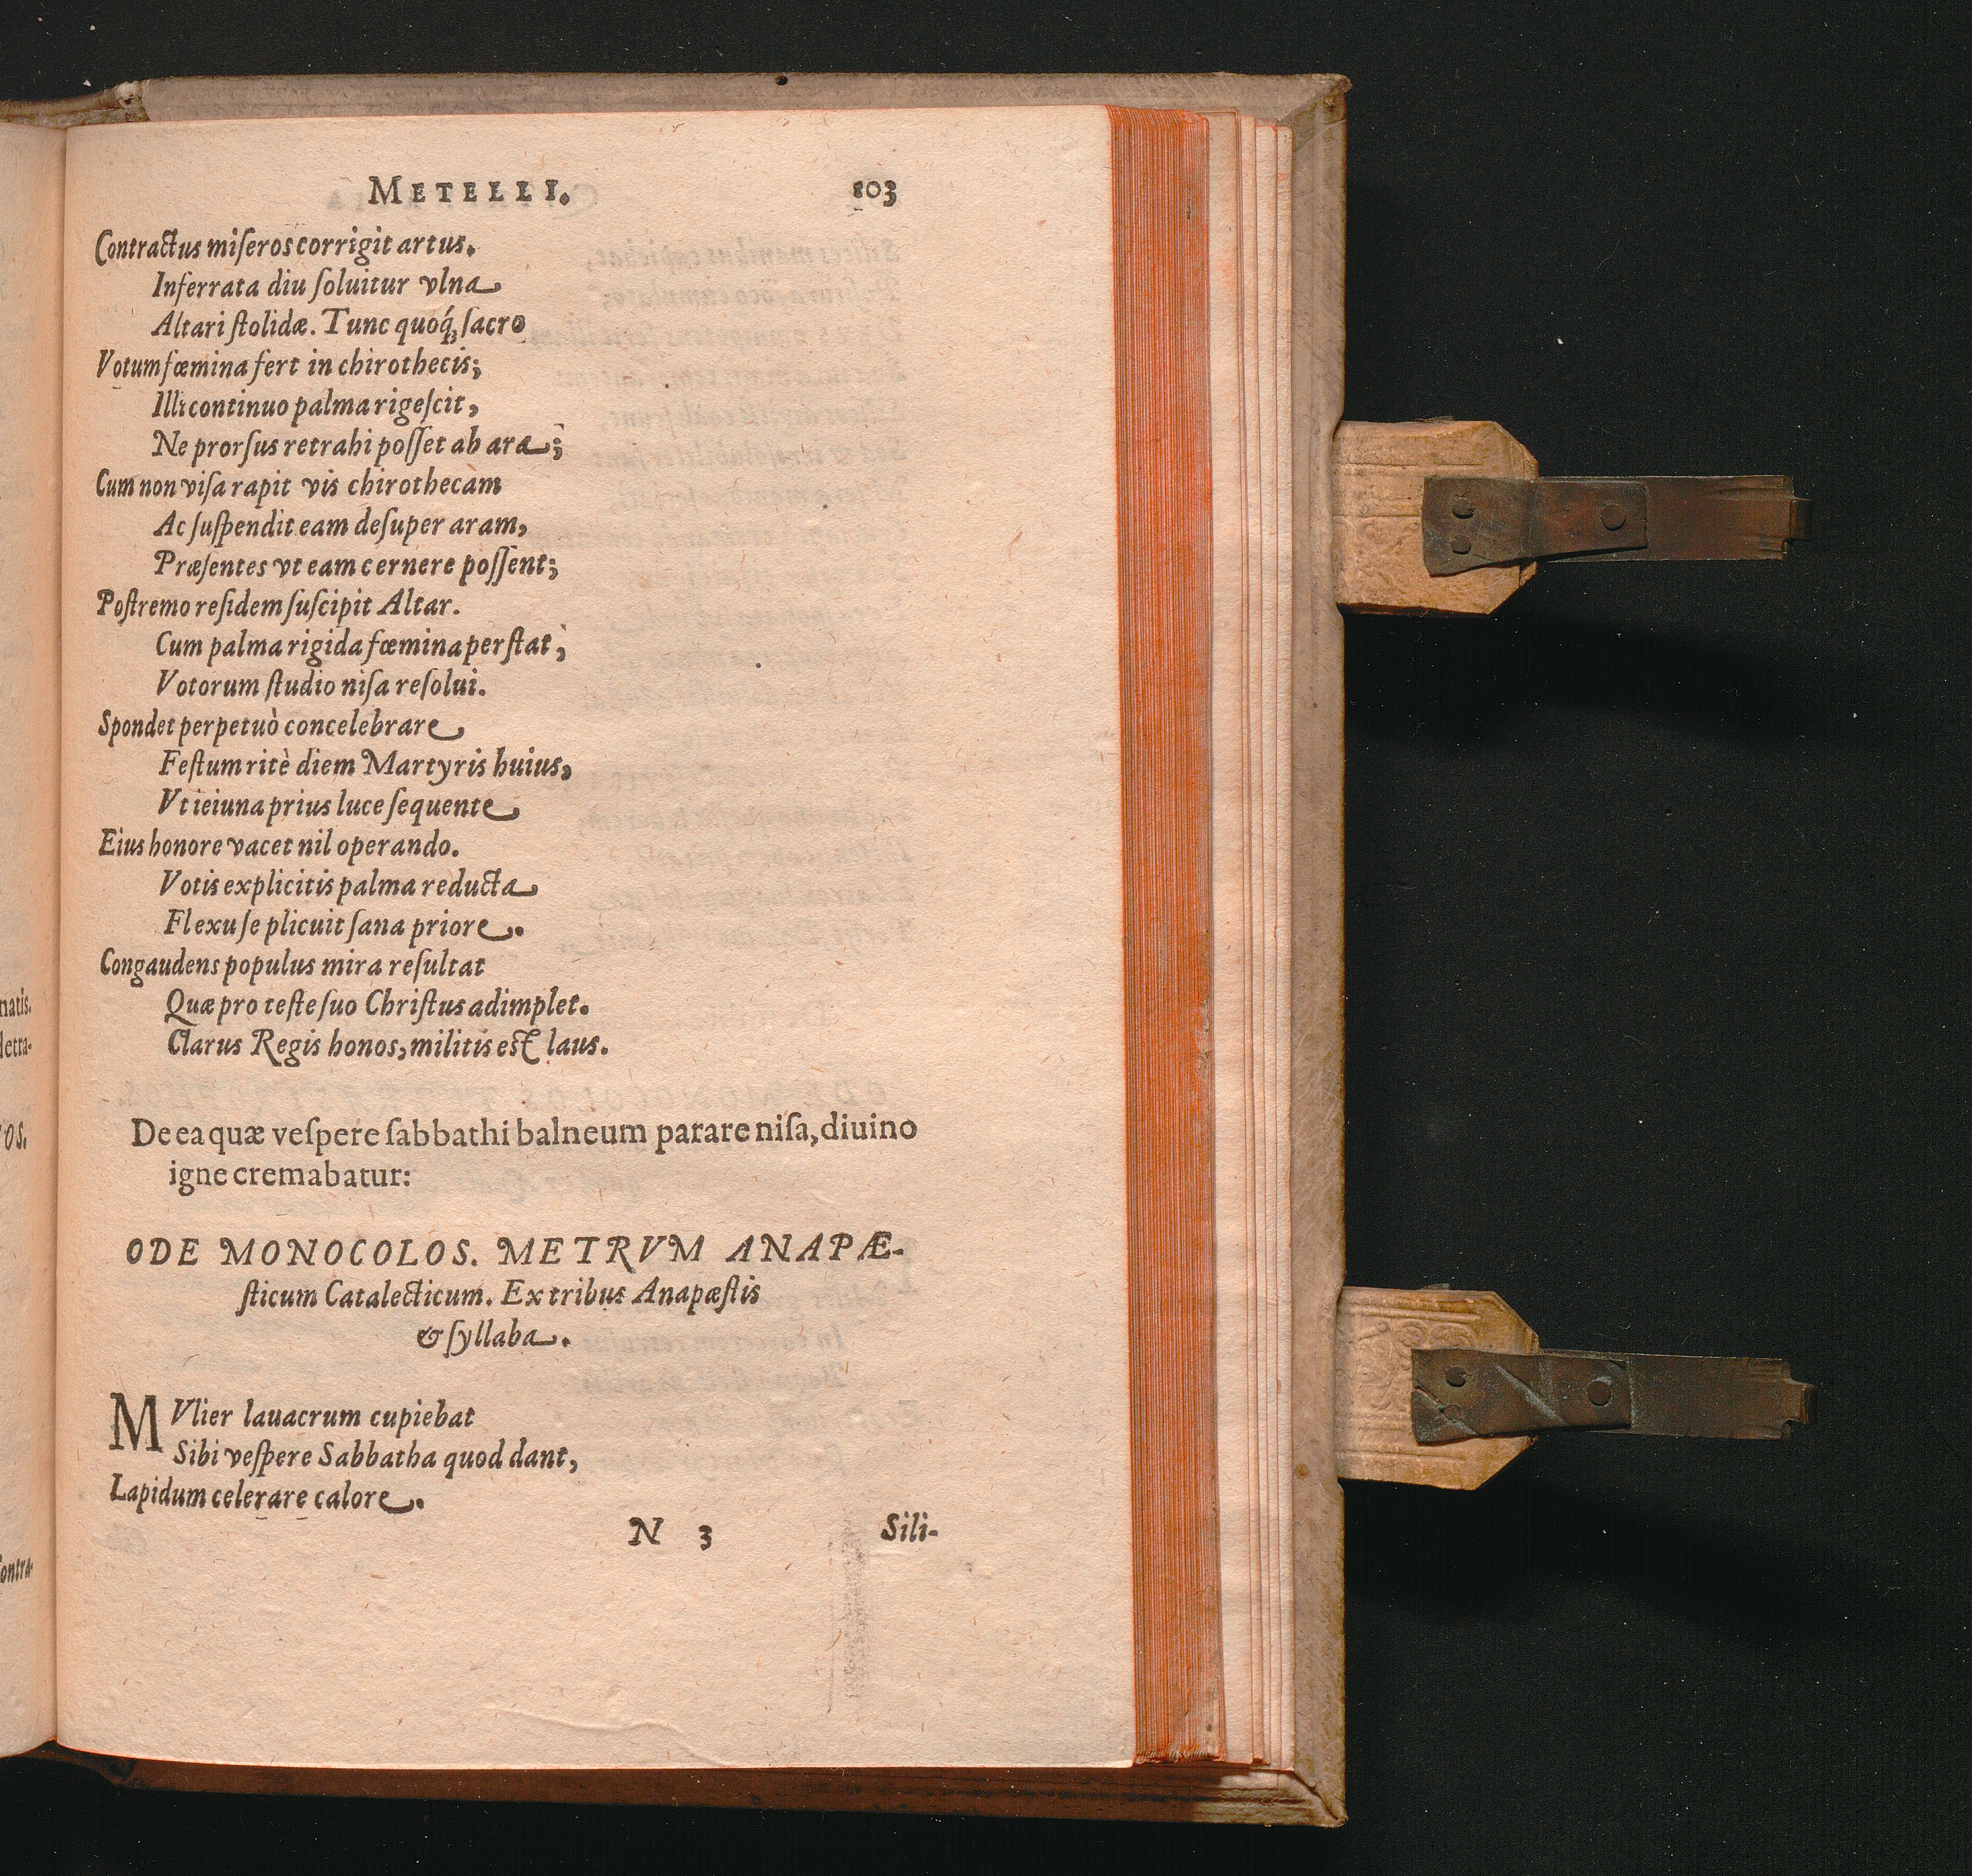 METELLI. 103
Contractus miſeros corrigit artus.
Inferrata diu ſoluitur vlna
Altari ſtolidæ. Tunc quoq́ꝫ ſacro
Votum fœmina fert in chirothecis;
Illi continuo palma rigeſcit,
Ne prorſus retrahi poſſet ab ara;
Cum non viſa rapit vis chirothecam
Ac ſuſpendit eam deſuper aram,
Præſentes vt eam cernere poſſent;
Poſtremo reſidem ſuſcipit Altar.
Cum palma rigida fœmina perſtat,
Votorum ſtudio niſa reſolui.
Spondet perpetuò concelebrare
Feſtum ritè diem Martyris huius,
Vt ieiuna prius luce ſequente
Eius honore vacet nil operando.
Votis explicitis palma reducta
Flexu ſe plicuit ſana priore.
Congaudens populus mira reſultat
Quæ pro teſte ſuo Chriſtus adimplet.
Clarus Regis honos, militis eſt laus.
De ea quæ veſpere ſabbathi balneum parare niſa, diuino
igne cremabatur:
ODE MONOCOLOS. METRVM ANAPÆ-
ſticum Catalecticum. Ex tribus Anapæſtis
& ſyllaba.
MVlier lauacrum cupiebat
Sibi veſpere Sabbatha quod dant,
Lapidum celerare calore.
N 3 Sili-
natis.
detra-
OS.
Contra-